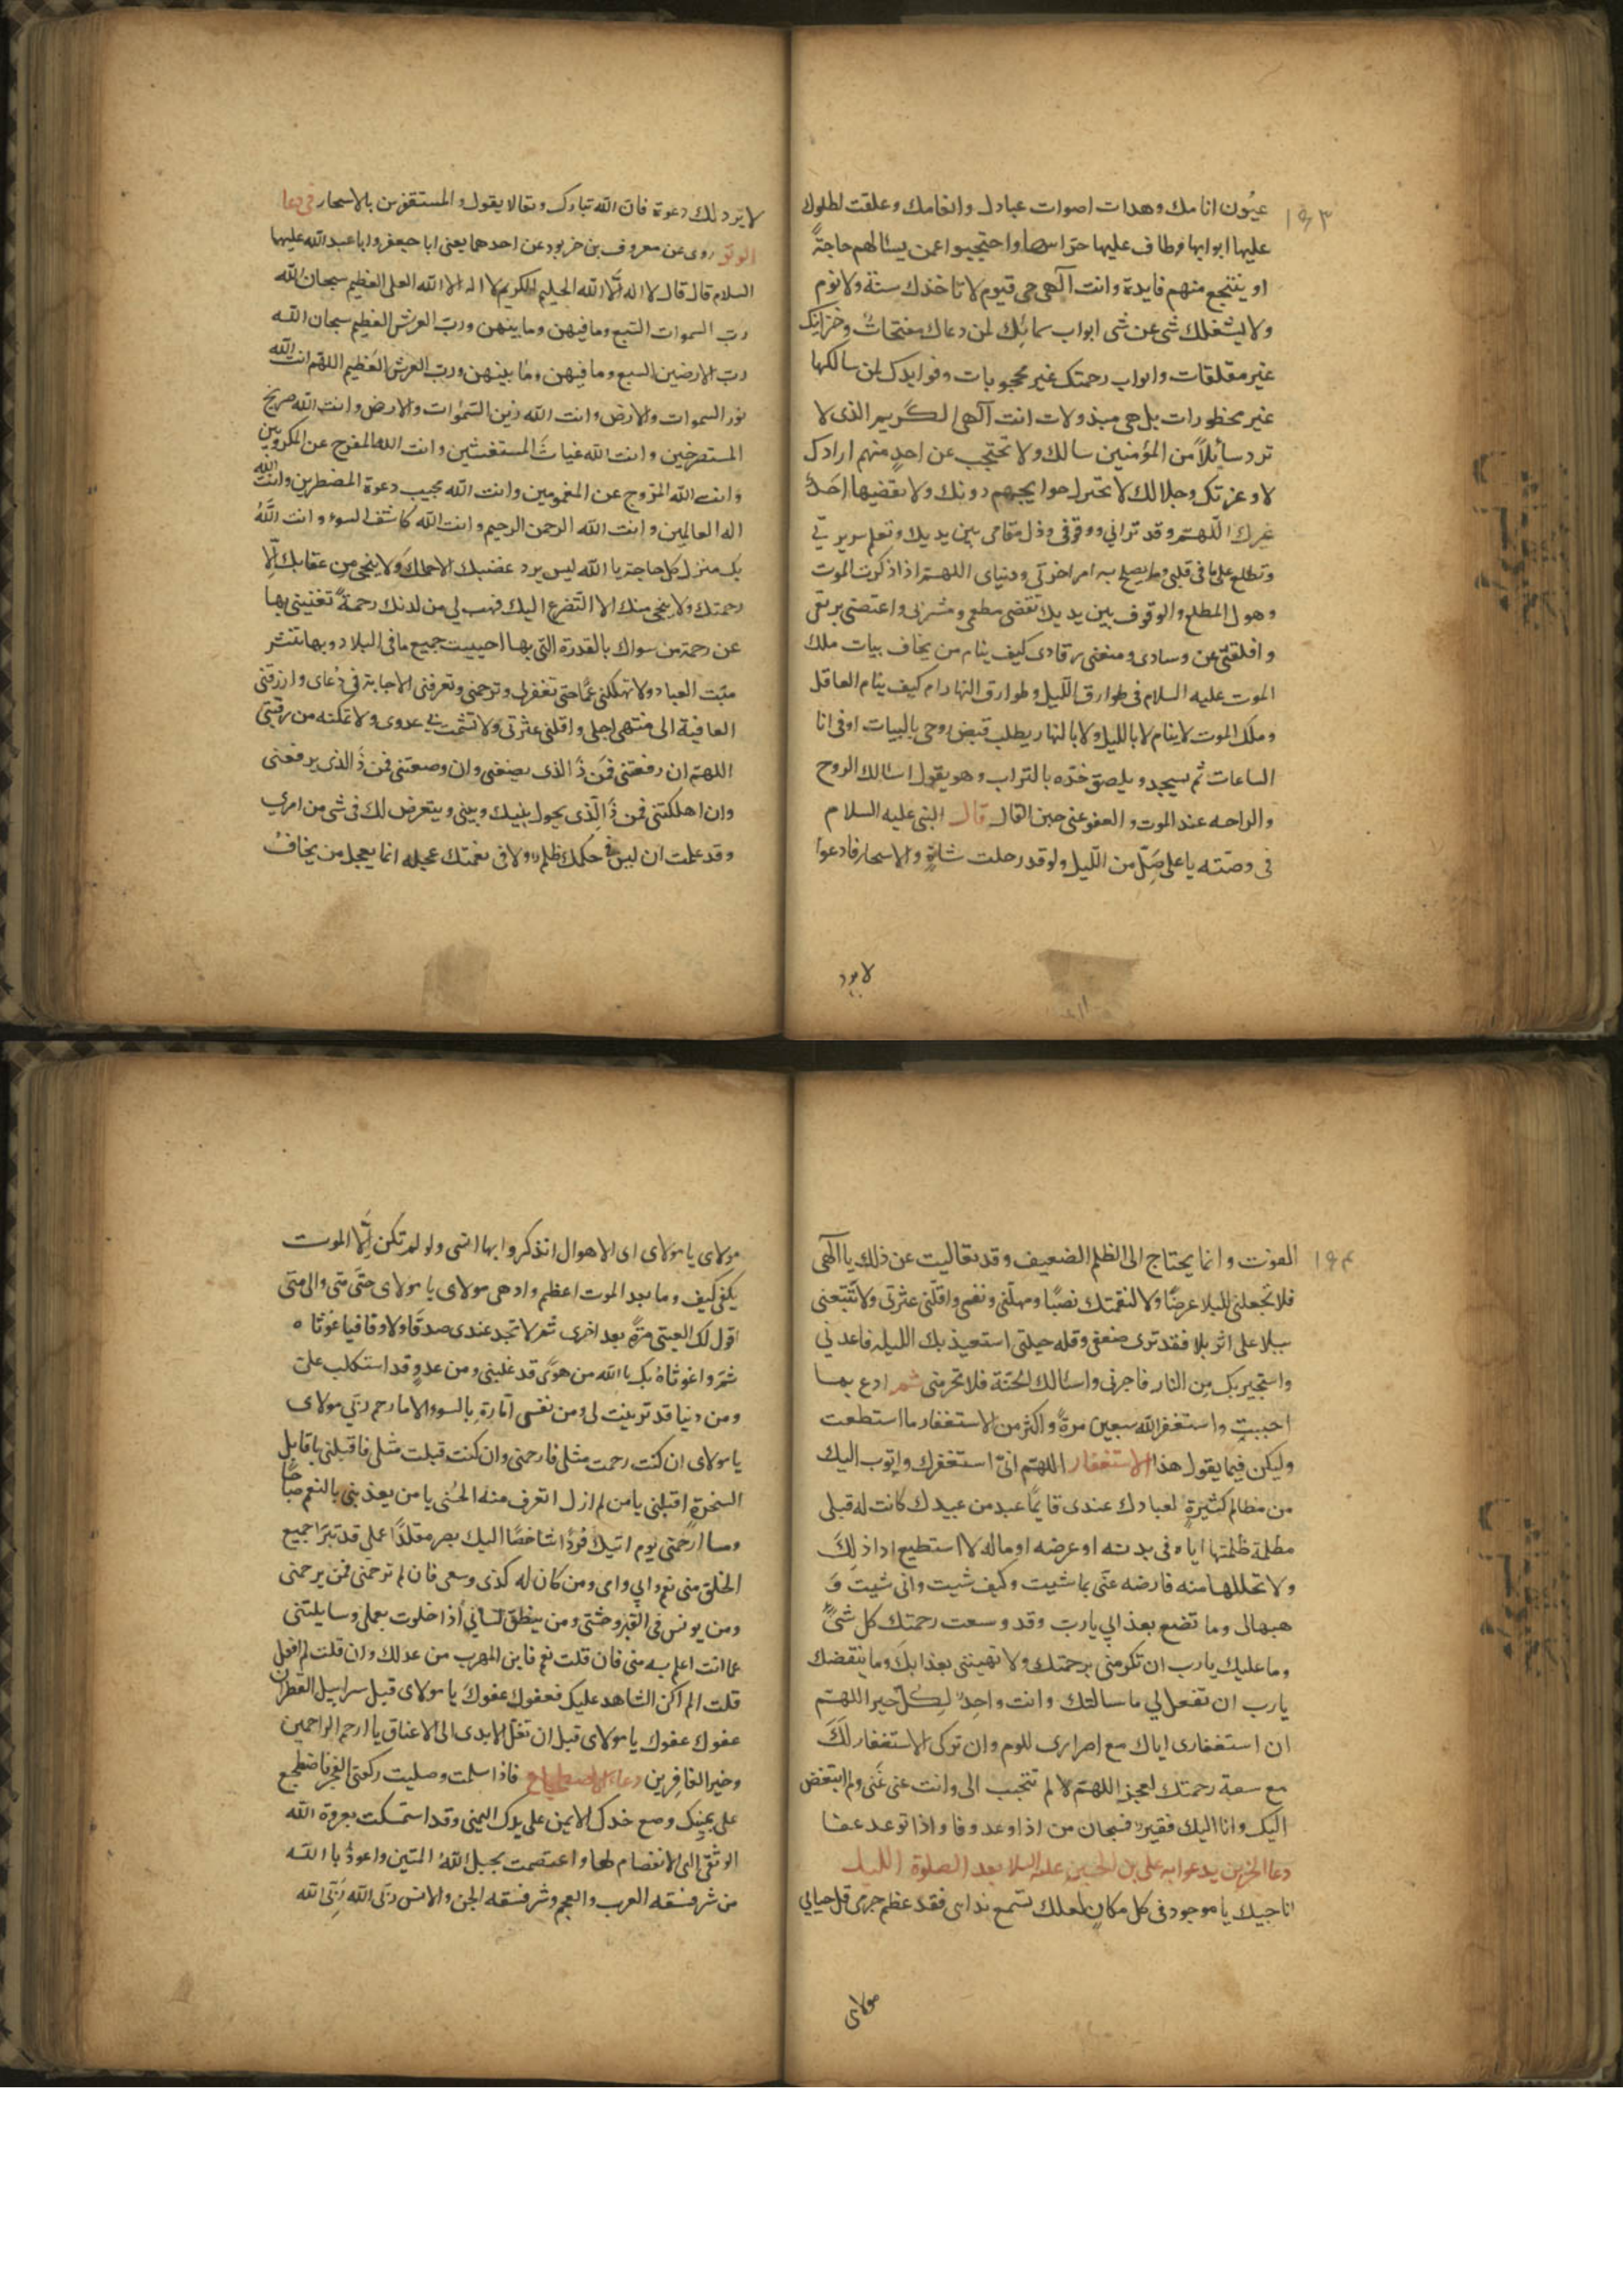 ١٩٣
عيُون انامك وهدات اصوات عبادك وانعامك وعلقت لطلوك
عليها ابوابها وطاف عليها حراسها واحتجبوا عمن يسئالهم حاجةً
او ينتجع منهم فايدة وانت آلهى حى قيوم لا تاخذك سنة ولا نوم
ولا يشغلك شى عن شى ابواب سمائك لمن دعاك مفتحات وخزاينك
غير مغلقات وابواب رحمتك غير محجوبات وفوايدك لمن سالكها
غير محظورات بل هى مبذولات انت آلهى الكريم الذى لا
ترد سائلاً من المؤمنين سالك ولا تحتجب عن احدٍ منهم ارادك
لا وعزتك وجلالك لا تختزل حوايجهم دونك ولا يقضيها احدٌ
غيرك اللّهتم وقد ترانى ووقوفى وذل مقامى بين يديك وتعلم سريرتى
وتطلع على ما فى قلبى وما يصلح به امر اخرتى ودنياى اللهتم اذا ذكرت الموت
وهول المطلع والوقوف بين يديك نقضى مطعمى ومشربى واغتصنى بريقى
واقلقنى عن وسادى ومنعنى رقادى كيف ينام من يخاف بيات ملك
الموت عليه السلام فى طوارق اللّيل وطوارق النهار ام كيف ينام العاقل
وملك الموت لا ينام لا بالليل ولا بالنهار يطلب قبض روحى بالبيات اوفى انا
الساعات ثم يسجد ويلصق خدّه بالتراب وهو يقول اسالك الروح
والراحه عند الموت والعفو عنى حين القاك قال النبى عليه السلام
فى وصّته يا على صَلّ من اللّيل ولو قدر حلب شاةٍ والاسحار فادعوا
لا يرد
لا يرد لك دعوة فان اللّه تبارك وتعالا يقول والمستغفرين بالاسحار فى دعا
الوتر روى عن معروف بن خربود عن احدهما يعنى ابا جعفر وابا عبد اللّه عليهما
السلام قال قال لا اله الّا اللّه الحليم الكريم لا اله الا اللّه العلى العظيم سبحان اللّه
رب السموات السّبع وما فيهن وما بينهن ورب العرش العظيم سبحان اللّه
رب الارضين السبع وما فيهن وما بينهن ورب العرش العظيم اللهّم انت اللّه
نور السموات والارض وانت اللّه زين السّموات والارض وانت اللّه صريخ
المستصرخين وانت اللّه غياث المستغيثين وانت اللّه المفرج عن المكروبين
وانت اللّه المروج عن المغمومين وانت اللّه مجيب دعوة المضطرين وانت اللّه
اله العالمين وانت اللّه الرحمن الرحيم وانت اللّه كاشف السوء وانت اللّهُ
بك منزل كل حاجة يا اللّه ليس يرد غضبك الا حلمك ولا ينجى من عقابك الّا
رحمتك ولا ينجى منك الا التّضرع اليك فهب لى من لدنك رحمةً تغنينى بها
عن رحمة من سواك بالقدرة التى بها احييت جميع ما فى البلاد وبها تنشر
ميّت العباد ولا تهلكنى غمًا حتى تغفر لى وترحمنى وتعرفنى الاجابة فى دُعاى وارزقنى
العافية الى منتهى اجلى واقلنى عثرتى ولا تشمت بى عدوى ولا تمكنه من رقبتى
اللهتم ان رفعتنى فمَن ذَ الذى يضعنى وان وضعتنى فمن ذَ الذى يرفعنى
وان اهلكتنى فمن ذَ الّذى يحول بينك وبينى ويتعرض لك فى شى من امرى
وقد علمت ان ليس فى حكمك ظلم ولا فى نقمتك عجله انما يعجل من يخافُ
١٩٤
الفوت وانما يحتاج الى الظلم الضعيف وقد تعاليت عن ذلك يا آلهى
فلا تجعلنى للبلا غرضًا ولا لنقمتك نصبًا ومهلّنى ونفسى واقلّنى عثرتى ولا تتبعنى
ببلا على اثر بلا فقد ترى ضعفى وقله حيلتى استعيذ بك الليله فاعذنى
واستجير بك من النار فاجرنى واسئالك الجنّة فلا تحرمنى ثم ادع بما
احببت واستغفر اللّه سبعين مرةً واكثر من الاستغفار ما استطعت
وليكن فيما يقول هذا الاستغفار اللهتم انىّ استغفرك واتوب اليك
من مظالم كثيرةٍ لعبادك عندى فايما عبد من عبيدك كانت له قبلى
مظلمة ظلمتها اياه فى بدنه او عرضه او ماله لا استطيع اداذ لكَ
ولا تحللها منه فارضه عنّى بما شيت وكيف شيت وانّى شيت وَ
هبهالى وما تضع بعذابى يا رب وقد وسعت رحمتك كل شىً
وما عليك يا رب ان تكرمنى برحمتك ولا تهيننى بعذابكَ وما ينقضك
يا رب ان تفعل لى ما سالتك وانت واجدٌ لكلّ خير اللهتم
ان استغفارى اياك مع اصرارى للوم وان تركى الاستغفار لكَ
مع سعة رحمتك لعجز اللهتم لا لم تتحبب الى وانت عنى غَنى ولم اتبغض
اليك وانا اليك فقير فسبحان من اذا وعد وفا واذا توعد عفا
دعا الحزين يدعوا به على بن الحسين عليه السلا بعد الصلوة الليل
اناجيك يا موجود فى كل مكانٍ لعلك تسمع نداى فقد عظم جرمى وقل حياىى
مولاى
مولاى يا مولاى اى الاهوال اتذكر وايها انسى ولو لم تكن الّا الموت
يكفى كيف وما بعد الموت اعظم وادهى مولاى يا مولاى حتّى متى والى متى
اقول لك العتبى مرّةً بعد اخرى ثم لا تجد عندى صدقًا ولا وفا فيا غوثاه
ثم واغوثاهُ بك يا اللّه من هوًى قد غلبنى ومن عدوٍ قد استكلب علىّ
ومن دنيا قد تزينت لى ومن نفسى امّارةٍ بالسوء الا ما رحم ربّى مولاى
يا مولاى ان كنت رحمت مثلى فارحمنى وان كنت قبلت مثلى فاقبلنى يا قابل
السحرةِ اقبلنى يا من لم ازل اتعرف منه الحُسنى يا من يغذينى بالنعم صباحًا
ومسا ارحمنى يوم اتيك فردًا شاخصًا اليك بصر مقلدًا عملى قد تبرّا جميع
الخلق منى نعم وابى وامى ومن كان له كدّى وسعى فان لم ترحمنى فمن يرحمنى
ومن يونس فى القبر وحشتى ومن ينطق لسانى اذا خلوت بعملى وسايلتنى
عما انت اعلم به منى فان قلت نعم فاين المهرب من عدلك وان قلت لم افعل
قلت الم اكن الشاهد عليك فعفوك عفوكَ يا مولاى قبل سرابيل القطران
عفوك عفوك يا مولاى قبل ان تغل الايدى الى الاعناق يا ارحم الراحمين
وخير الغافرين دعاء الاضطجاع فاذا سلمت وصليت ركعتى الفجر فاضطجع
على يمينك وضع خدك الايمن على يدك اليمنى وقد استمسكت بعروة اللّه
الوثقى التى لا انفصام لها واعتصمت بحبل اللّه المتين واعوذُ با اللّه
من شر فسقه العرب والعجم وشر فسقه الجن والانس ربّى اللّه رَبّى اللّه